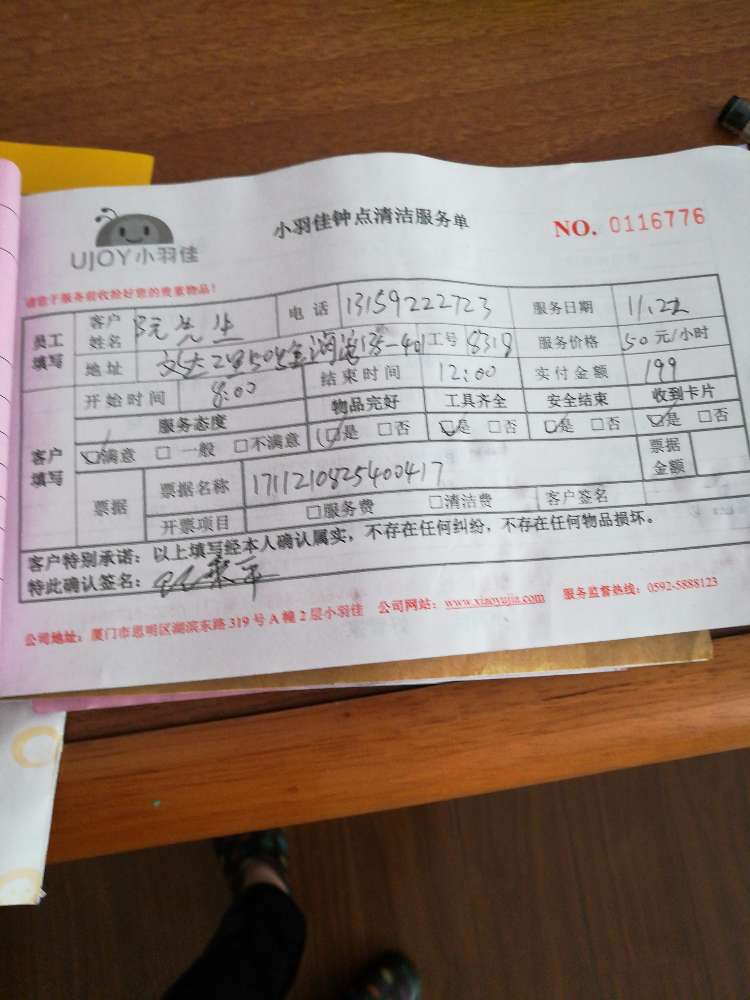 UJOY小羽佳
小羽佳钟点清洁服务单
NO. 0116776
请您于服务前收捡好您的贵重物品!
员工填写 客户姓名 阮先生 电话 13159222723 服务日期 11.22
地址 工号 8318 服务价格 50元/小时
开始时间 8:00 结束时间 12:00 实付金额 199
客户填写 服务态度 物品完好 工具齐全 安全结束 收到卡片
☑满意 □一般 □不满意 ☑是 □否 ☑是 □否 ☑是 □否 ☑是 □否
票据 票据名称 1711210825400417 票据金额
开票项目 □服务费 □清洁费 客户签名
客户特别承诺:以上填写经本人确认属实,不存在任何纠纷,不存在任何物品损坏。
特此确认签名:
公司地址:厦门市思明区湖滨东路319号A幢2层小羽佳 公司网站:www.xiaoyujia.com 服务监督热线:0592-5888123